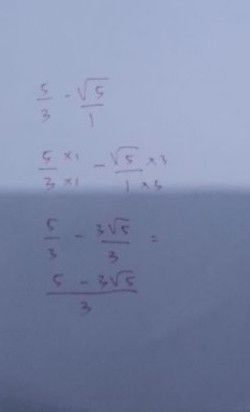 5/3 - √5/1
5×1/3×1 - √5×3/1×3
5/3 - 3√5/3 =
5 - 3√5/3